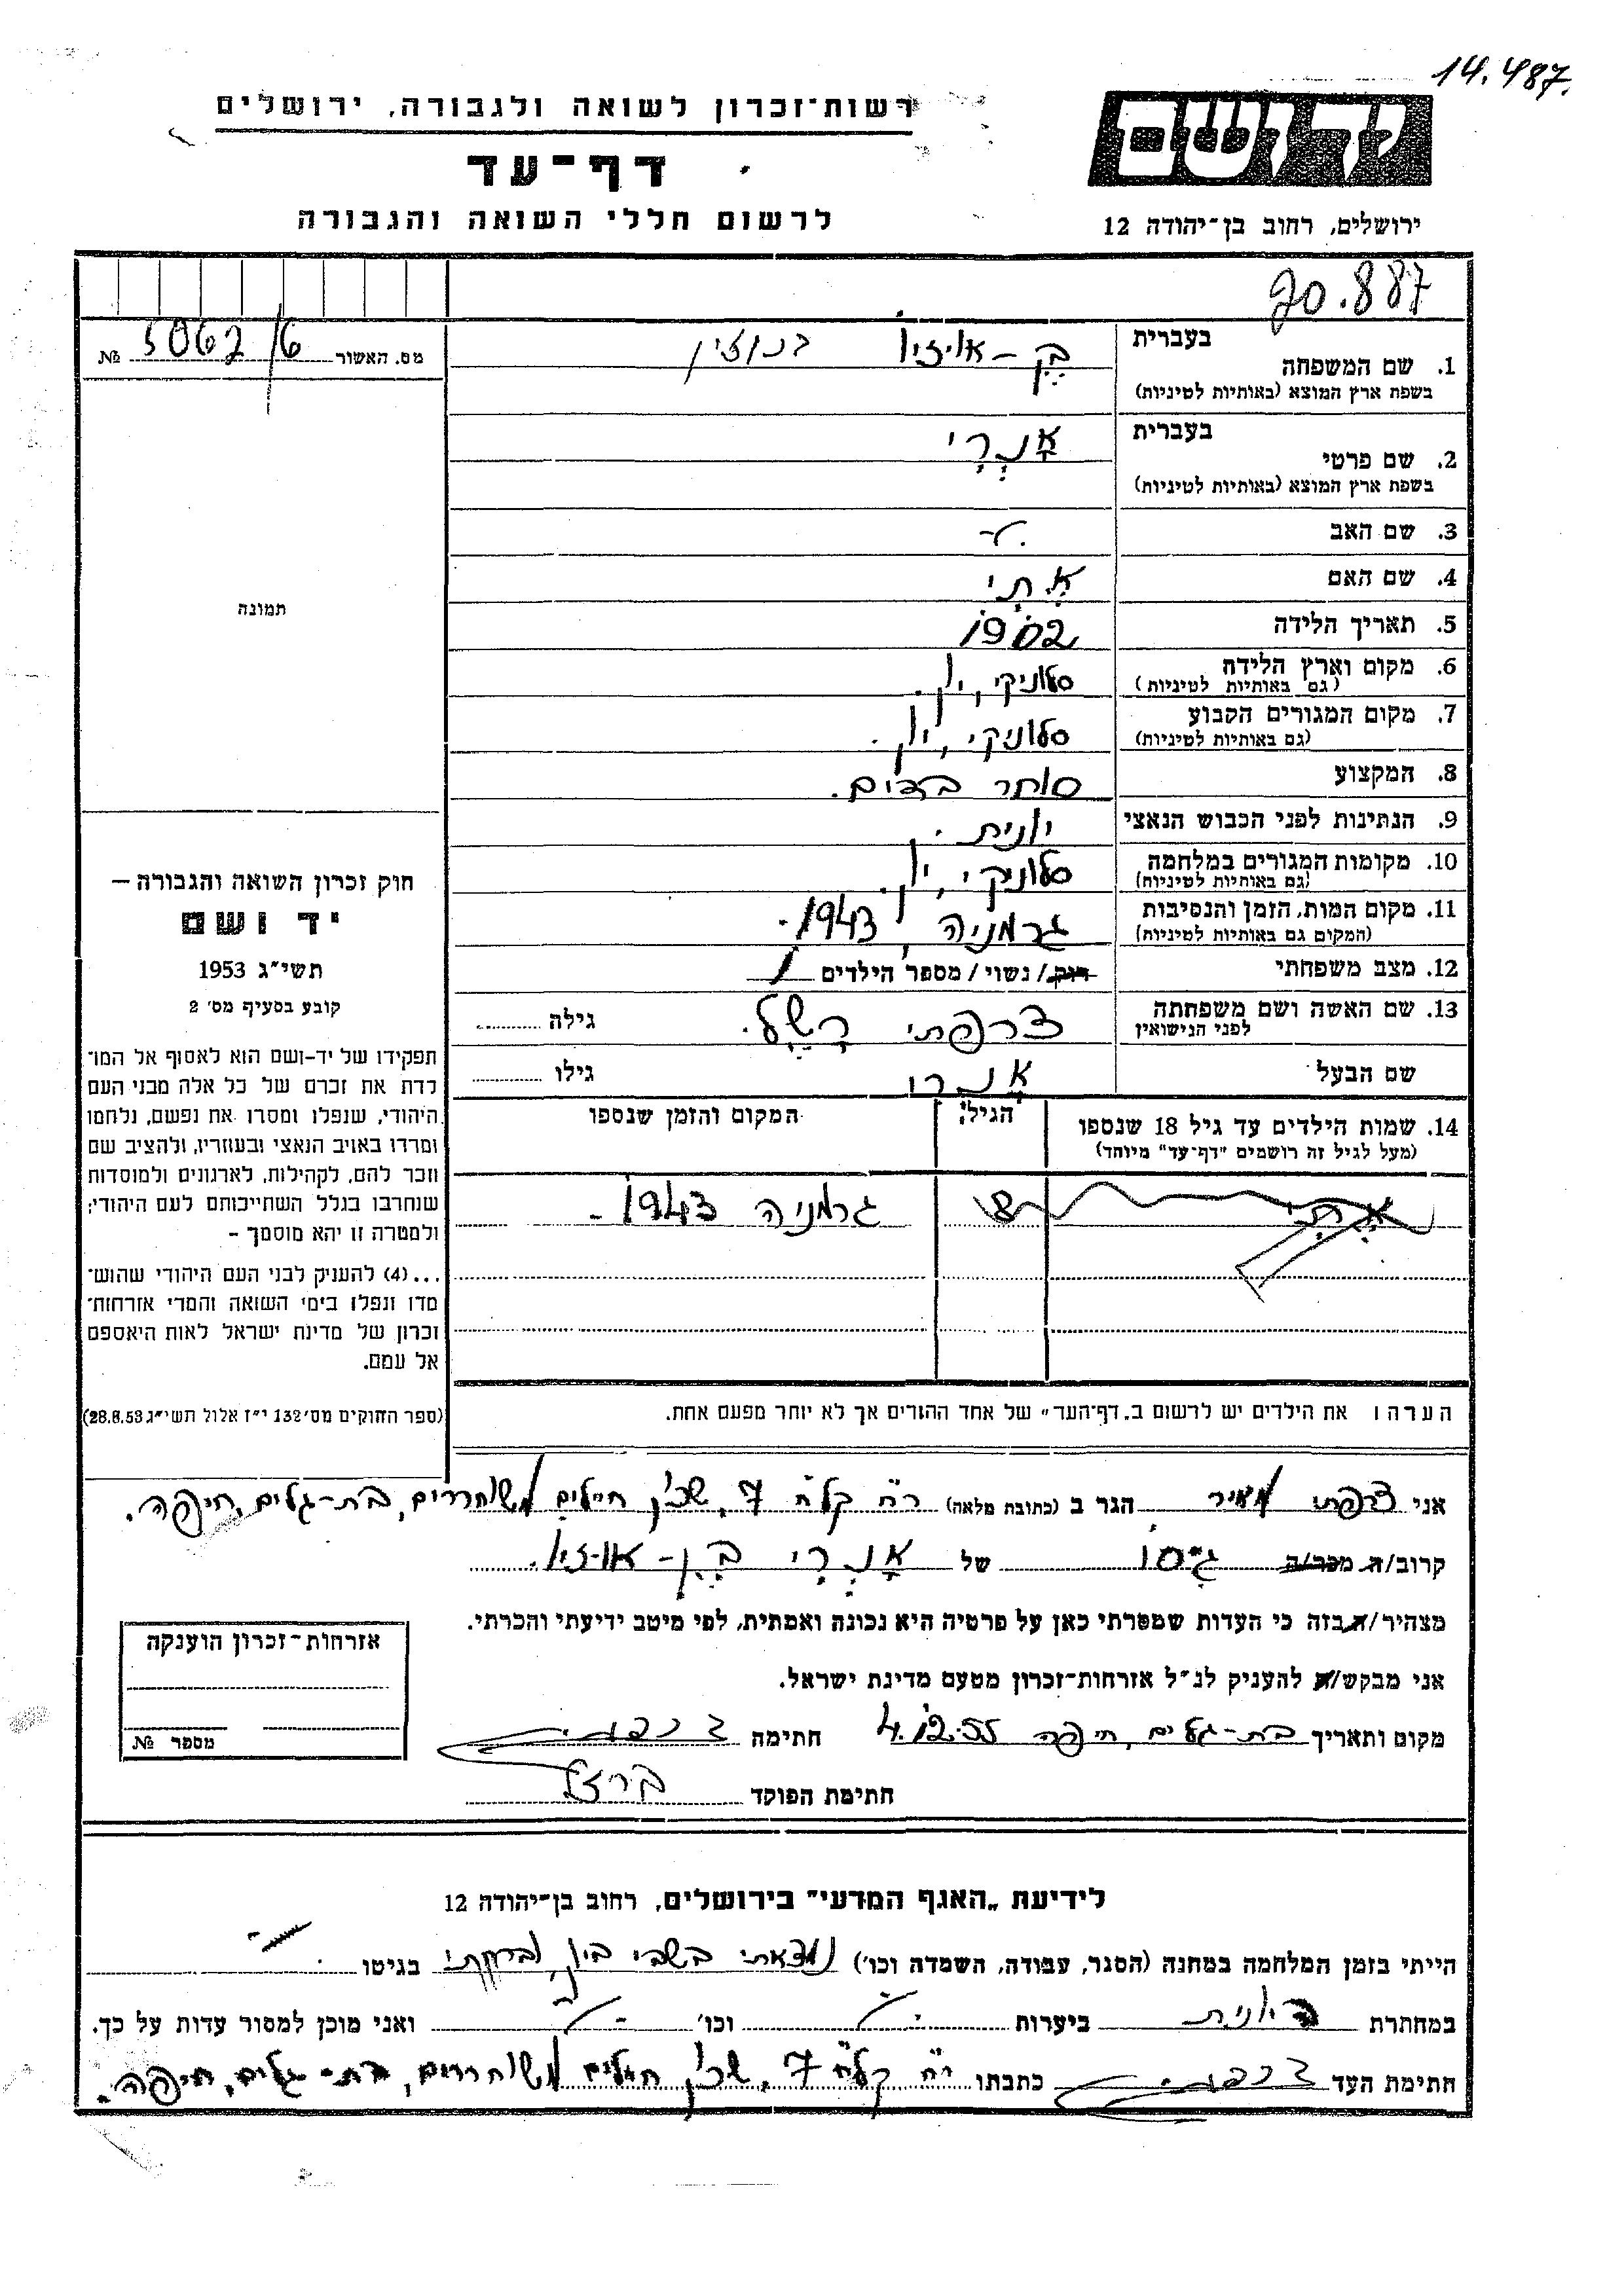 14.487.
רשות־זכרון לשואה ולגבורה, ירושלים
יד ושם
דף־עד
לרשום חללי השואה והגבורה
ירושלים, רחוב בן־יהודה 12
20.887
מס. האשור 5062/6 №
בעברית
1. שם המשפחה בן-אוזיו
בשפת ארץ המוצא (באותיות לטיניות)
בעברית
2. שם פרטי אָנְרִי
בשפת ארץ המוצא (באותיות לטיניות)
3. שם האב -
4. שם האם אֶתִי
5. תאריך הלידה 1902
6. מקום וארץ הלידה סלוניקי, יון.
(גם באותיות לטיניות)
7. מקום המגורים הקבוע סלוניקי, יון.
(גם באותיות לטיניות)
8. המקצוע סוחר בדים.
9. הנתינות לפני הכבוש הנאצי יונית.
10. מקומות המגורים במלחמה סלוניקי, יון.
(גם באותיות לטיניות)
11. מקום המות, הזמן והנסיבות גרמניה, 1943.-
(המקום גם באותיות לטיניות)
12. מצב משפחתי רוק/ נשוי/ מספר הילדים 1
13. שם האשה ושם משפחתה צרפתי רָשֶל. גילה
לפני הנישואין
שם הבעל אנרי גילו
14. שמות הילדים עד גיל 18 שנספו הגיל: המקום והזמן שנספו
(מעל לגיל זה רושמים "דף־עד" מיוחד)
8 גרמניה 1943.-
תמונה
חוק זכרון השואה והגבורה –
יד ושם
תשי״ג 1953
קובע בסעיף מס׳ 2
תפקידו של יד-ושם הוא לאסוף אל המו־
לדת את זכרם של כל אלה מבני העם
היהודי, שנפלו ומסרו את נפשם, נלחמו
ומרדו באויב הנאצי ובעוזריו, ולהציב שם
וזכר להם, לקהילות, לארגונים ולמוסדות
שנחרבו בגלל השתייכותם לעם היהודי;
ולמטרה זו יהא מוסמך –
...(4) להעניק לבני העם היהודי שהוש־
מדו ונפלו בימי השואה והמרי אזרחות־
זכרון של מדינת ישראל לאות היאספם
אל עמם.
(ספר החוקים מס׳ 132 י״ז אלול תשי״ג 28.8.53)
הערה: את הילדים יש לרשום ב„דף־העד״ של אחד ההורים אך לא יותר מפעם אחת.
אני צרפתי מאיר הגר ב (כתובת מלאה) רח׳ קל״ח 7, שכון חיילים משוחררים, בת-גלים, חיפה.
קרוב/ה מכר/ה גיסו של אָנְרִי בֶן-אוזיו.
מצהיר/ה בזה כי העדות שמסרתי כאן על פרטיה היא נכונה ואמתית, לפי מיטב ידיעתי והכרתי.
אני מבקש/ת להעניק לנ״ל אזרחות־זכרון מטעם מדינת ישראל.
מקום ותאריך בת-גלים, חיפה 4.12.55 חתימה צרפתי
חתימת הפוקד ברזל
אזרחות־זכרון הוענקה
מספר №
לידיעת „האגף המדעי״ בירושלים, רחוב בן־יהודה 12
הייתי בזמן המלחמה במחנה (הסגר, עבודה, השמדה וכו׳) נמצאתי בשבי ביון, וברחתי בגיטו -
במחתרת היונית ביערות - וכו׳ - ואני מוכן למסור עדות על כך.
חתימת העד צרפתי כתבתו רח׳ קל״ח 7, שכון חיילים משוחררים, בת-גלים, חיפה.